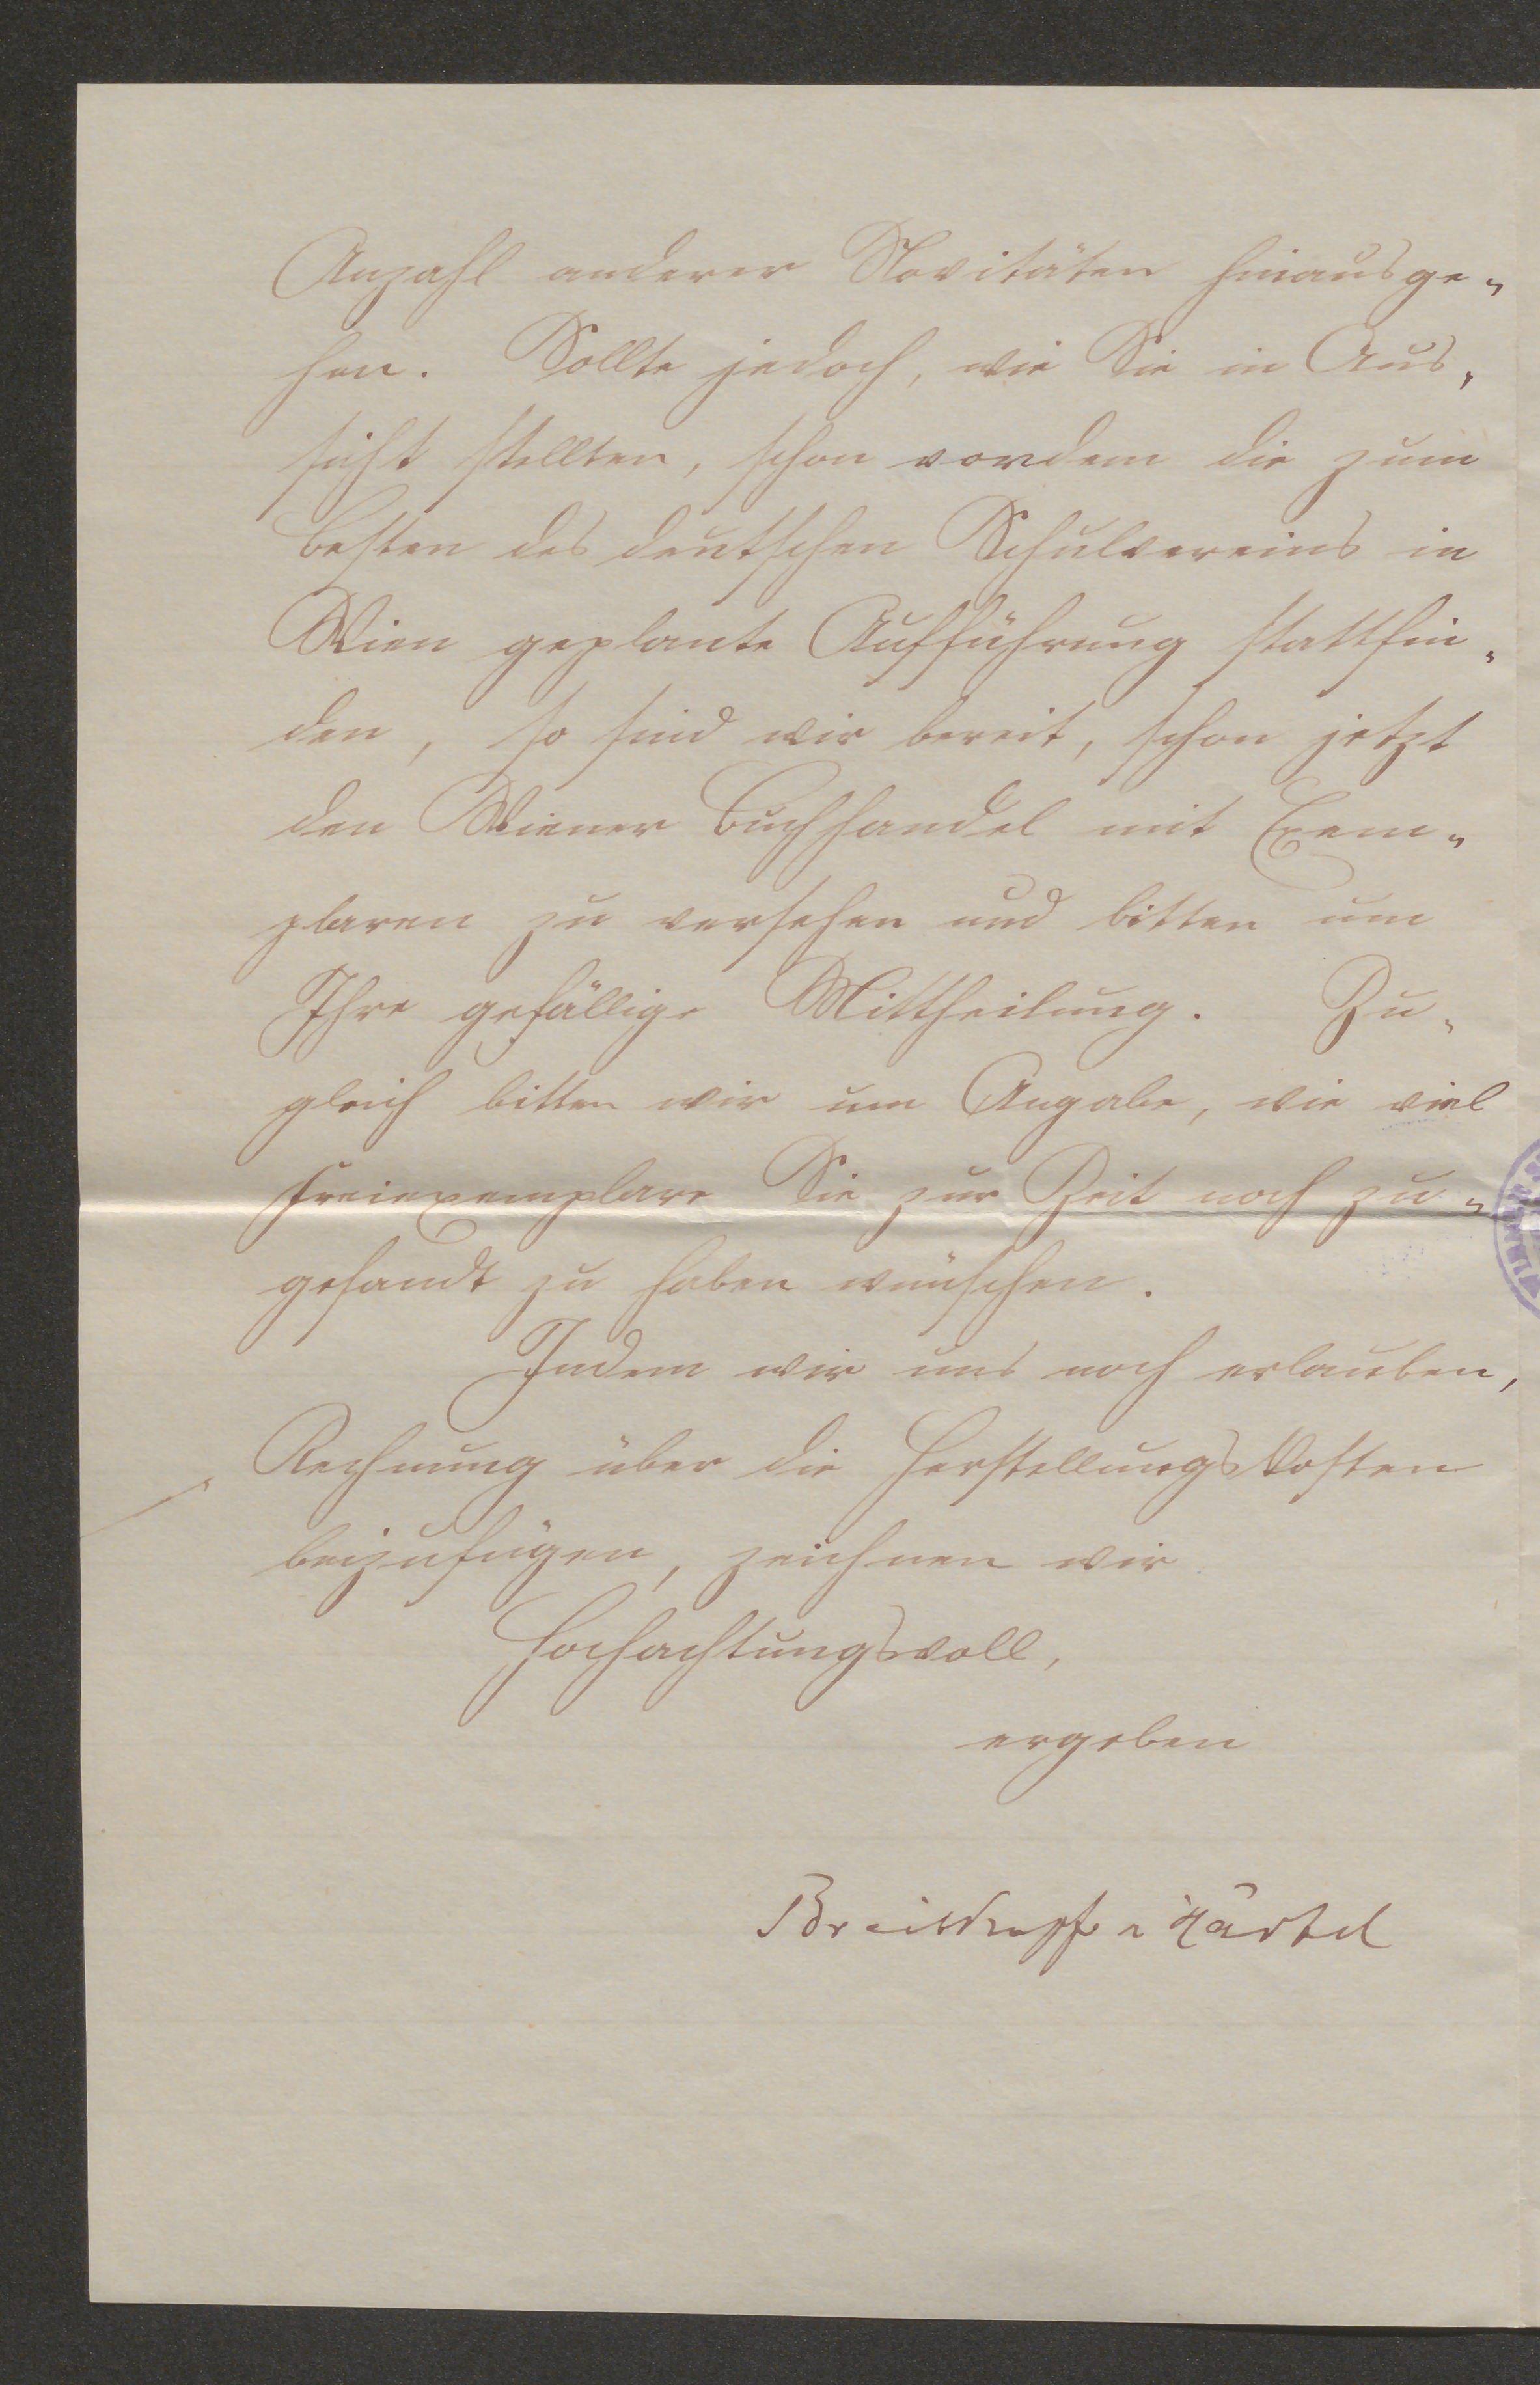 Anzahl anderer Novitäten hinausge-
hen. Sollte jedoch, wie Sie in Aus-
sicht stellten, schon vordem die zum
Besten des deutschen Schulvereins in
Wien geplante Aufführung stattfin-
den, so sind wir bereit, schon jetzt
den Wiener Buchhandel mit Exem-
plaren zu versehen und bitten um
Ihre gefällige Mittheilung. Zu-
gleich bitten wir um Angabe, wie viel
Freiexemplare Sie zur Zeit noch zu-
gesandt zu haben wünschen.
Indem wir uns noch erlauben,
Rechnung über die Herstellungskosten
beizufügen, zeichnen wir
Hochachtungsvoll,
ergeben
Breitkopf u Härtel